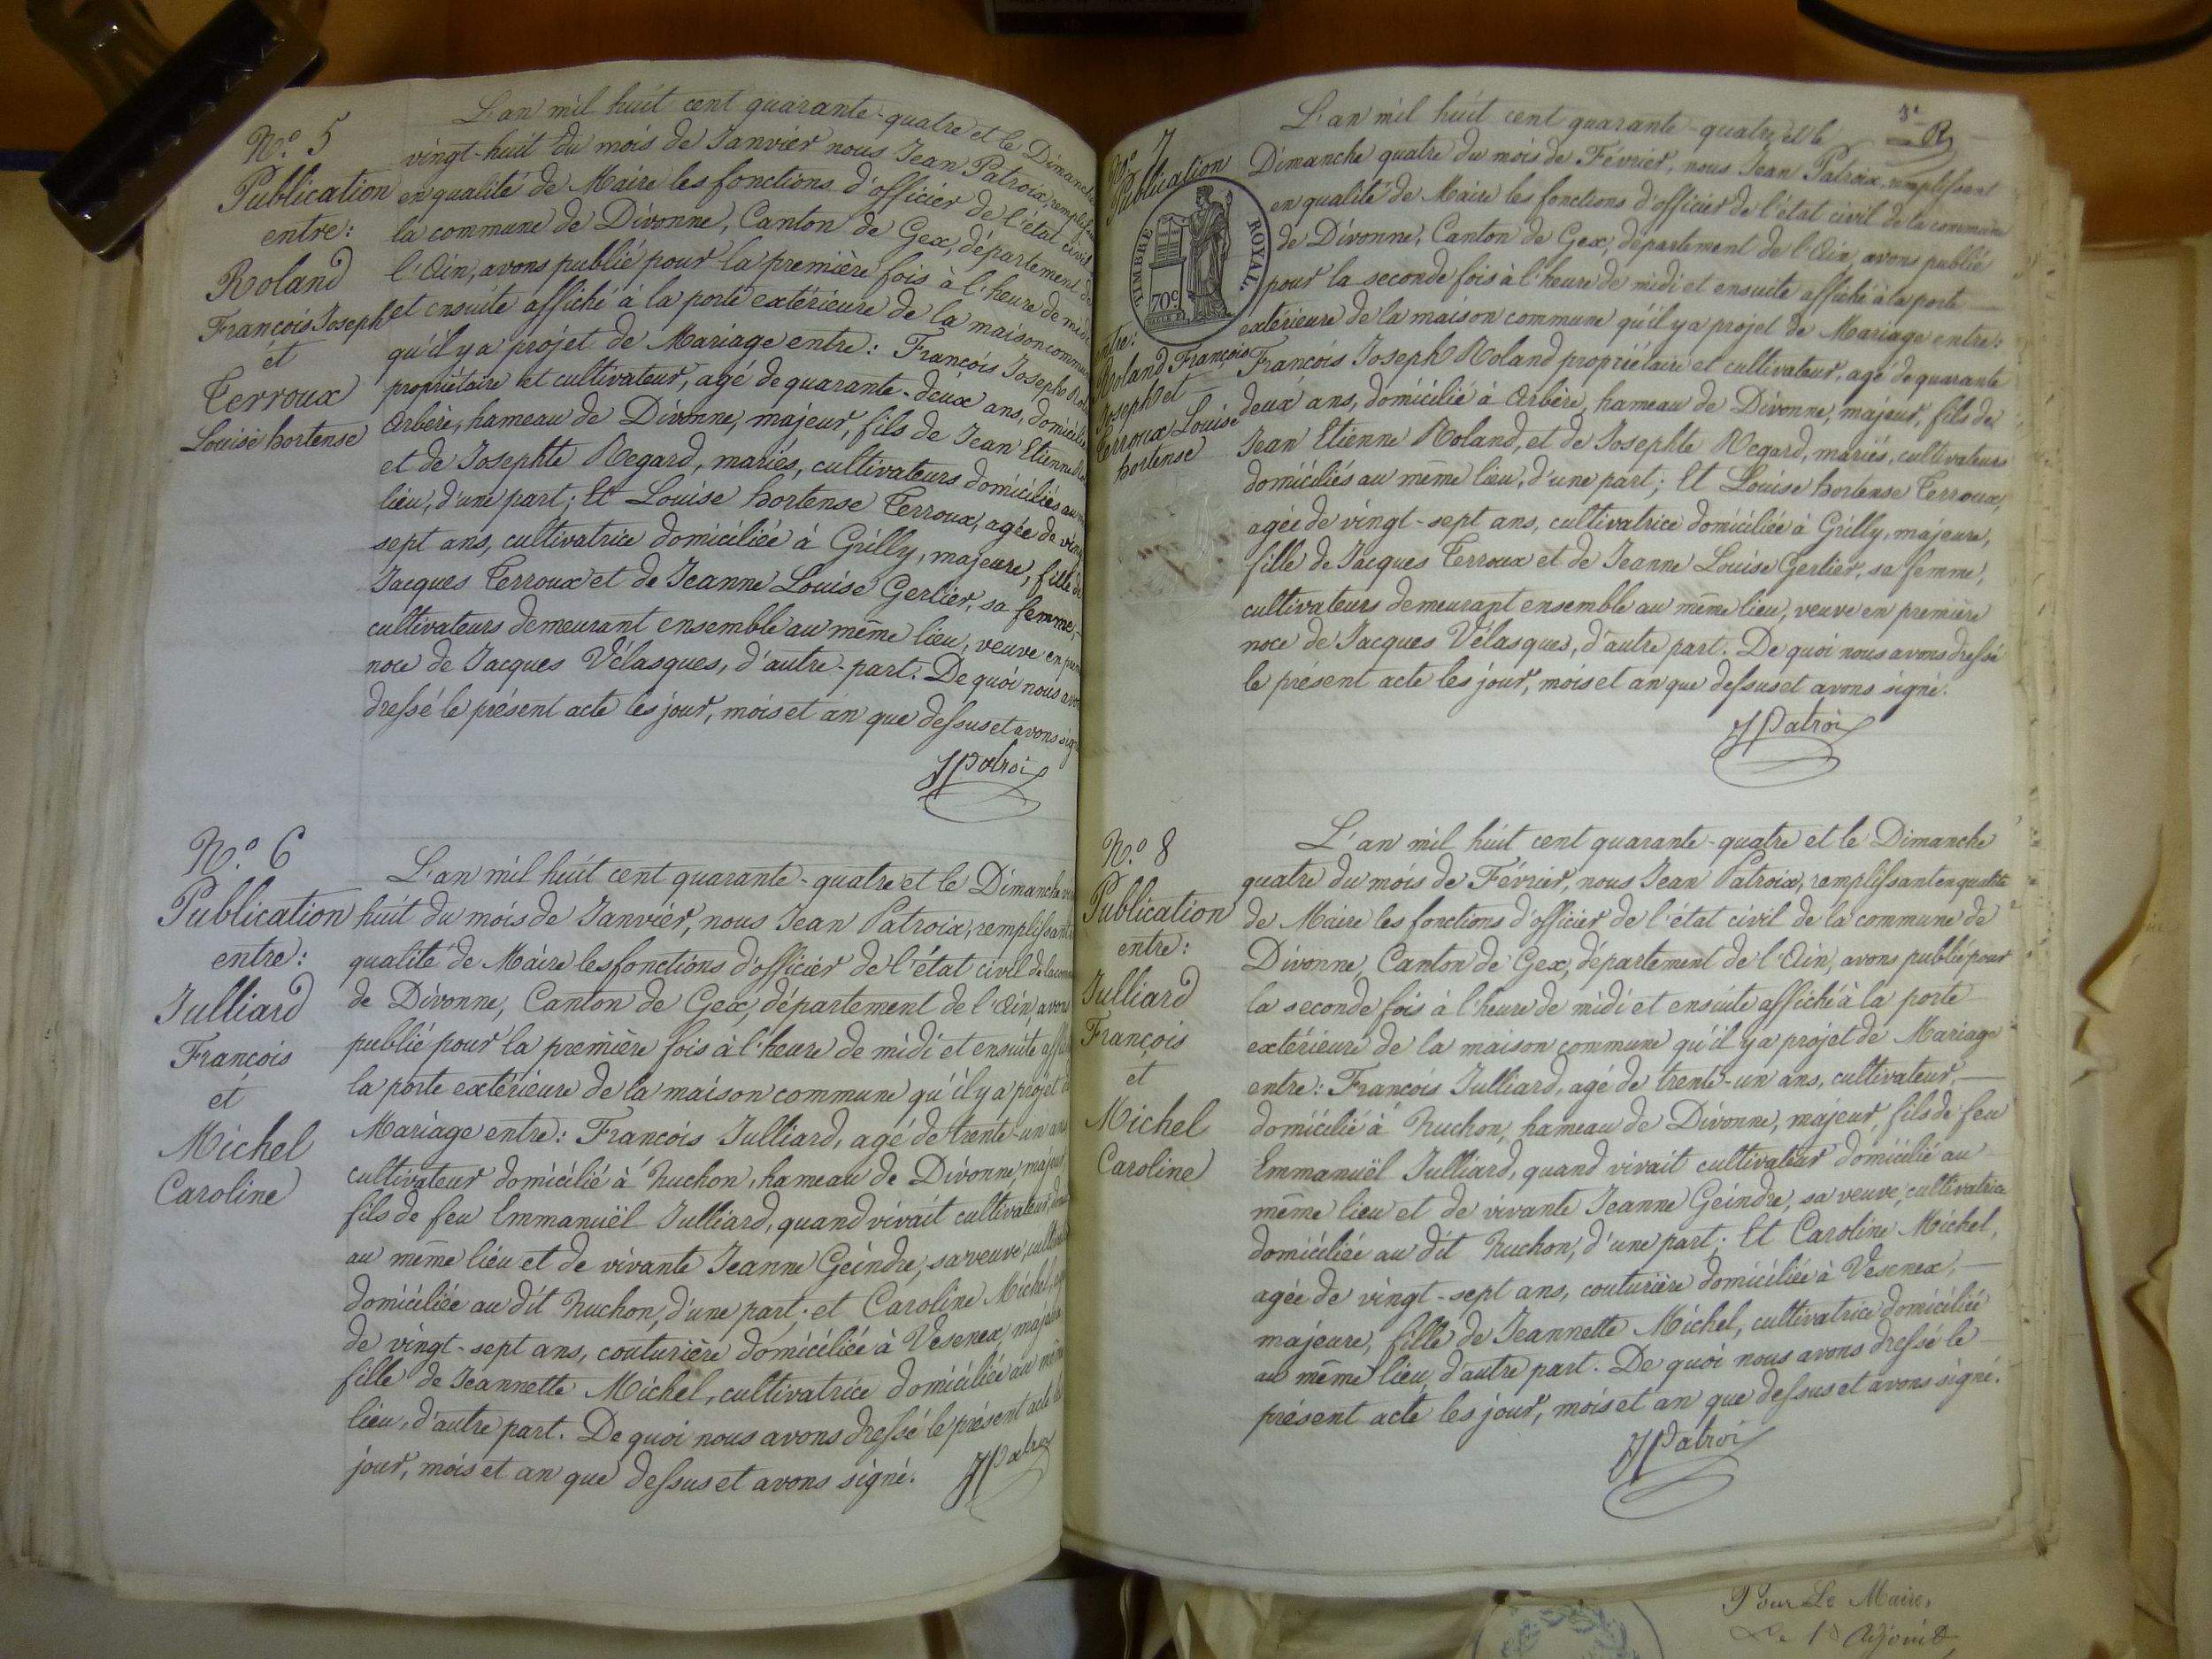 N.º 5
Publication
entre:
Roland
François Joseph
et
Terroux
Louise hortense
L'an mil huit cent quarante-quatre et le Dimanche
vingt-huit du mois de Janvier nous Jean Patroix,
en qualité de Maire les fonctions d'officier de l'état civil
la commune de Divonne, Canton de Gex, département de
l'Ain, avons publié pour la première fois à l'heure de midi
et ensuite affiché à la porte extérieure de la maison commune
qu'il y a projet de Mariage entre: François Joseph
propriétaire et cultivateur, agé de quarante-deux ans, domicilié
Arbère, hameau de Divonne, majeur, fils de Jean Etienne
et de Josephte Regard, mariés, cultivateurs domiciliés au
lieu, d'une part; Et Louise hortense Terroux, agée de
sept ans, cultivatrice domiciliée à Grilly, majeure, fille de
Jacques Terroux et de Jeanne Louise Gerlier, sa femme,
cultivateurs demeurant ensemble au même lieu, veuve en
noce de Jacques Vélasques, d'autre-part. De quoi nous
dressé le présent acte les jour, mois et an que dessus et avons
JPatroi
N.º 6
Publication
entre:
Julliard
François
et
Michel
Caroline
L'an mil huit cent quarante-quatre et le Dimanche
huit du mois de Janvier, nous Jean Patroix, remplissant
qualité de Maire les fonctions d'officier de l'état civil de la
de Divonne, Canton de Gex, département de l'Ain, avons
publié pour la première fois à l'heure de midi et ensuite
la porte extérieure de la maison commune qu'il y a projet
Mariage entre: François Julliard, agé de trente-un ans
cultivateur domicilié à Ruchon, hameau de Divonne, majeur,
fils de feu Emmanuël Julliard, quand vivait cultivateur
au même lieu et de vivante Jeanne Geindre, sa veuve,
domiciliée au dit Ruchon, d'une part; et Caroline Michel,
de vingt-sept ans, couturière domiciliée à Vesenex,
fille de Jeannette Michel, cultivatrice domiciliée au même
lieu, d'autre part. De quoi nous avons dressé le présent acte les
jour, mois et an que dessus et avons signé.
JPatroi
3e
R
N.º 7
Publication
TIMBRE ROYAL
70c
entre:
Roland François
Joseph et
Terroux Louise
hortense
L'an mil huit cent quarante-quatre et le
Dimanche quatre du mois de Février, nous Jean Patroix, remplissant
en qualité de Maire les fonctions d'officier de l'état civil de la commune
de Divonne, Canton de Gex, département de l'Ain, avons publié
pour la seconde fois à l'heure de midi et ensuite affiché à la porte
extérieure de la maison commune qu'il y a projet de Mariage entre:
François Joseph Roland propriétaire et cultivateur, agé de quarante
deux ans, domicilié à Arbère, hameau de Divonne, majeur, fils de
Jean Etienne Roland, et de Josephte Regard, mariés, cultivateurs
domiciliés au même lieu, d'une part; Et Louise hortense Terroux,
agée de vingt-sept ans, cultivatrice domiciliée à Grilly, majeure,
fille de Jacques Terroux et de Jeanne Louise Gerlier, sa femme,
cultivateurs demeurant ensemble au même lieu, veuve en première
noce de Jacques Vélasques, d'autre part. De quoi nous avons dressé
le présent acte les jour, mois et an que dessus et avons signé.
JPatroi
N.º 8
Publication
entre:
Julliard
François
et
Michel
Caroline
L'an mil huit cent quarante-quatre et le Dimanche
quatre du mois de Février, nous Jean Patroix, remplissant en qualité
de Maire les fonctions d'officier de l'état civil de la commune de
Divonne, Canton de Gex, département de l'Ain, avons publié pour
la seconde fois à l'heure de midi et ensuite affiché à la porte
extérieure de la maison commune qu'il y a projet de Mariage
entre: François Julliard, agé de trente-un ans, cultivateur,
domicilié à Ruchon, hameau de Divonne, majeur, fils de feu
Emmanuël Julliard, quand vivait cultivateur domicilié au
même lieu et de vivante Jeanne Geindre, sa veuve, cultivatrice
domiciliée au dit Ruchon, d'une part; Et Caroline Michel,
agée de vingt-sept ans, couturière domiciliée à Vesenex,
majeure, fille de Jeannette Michel, cultivatrice domiciliée
au même lieu, d'autre part. De quoi nous avons dressé le
présent acte les jour, mois et an que dessus et avons signé.
JPatroi
Pour Le Maire,
Adjoint,